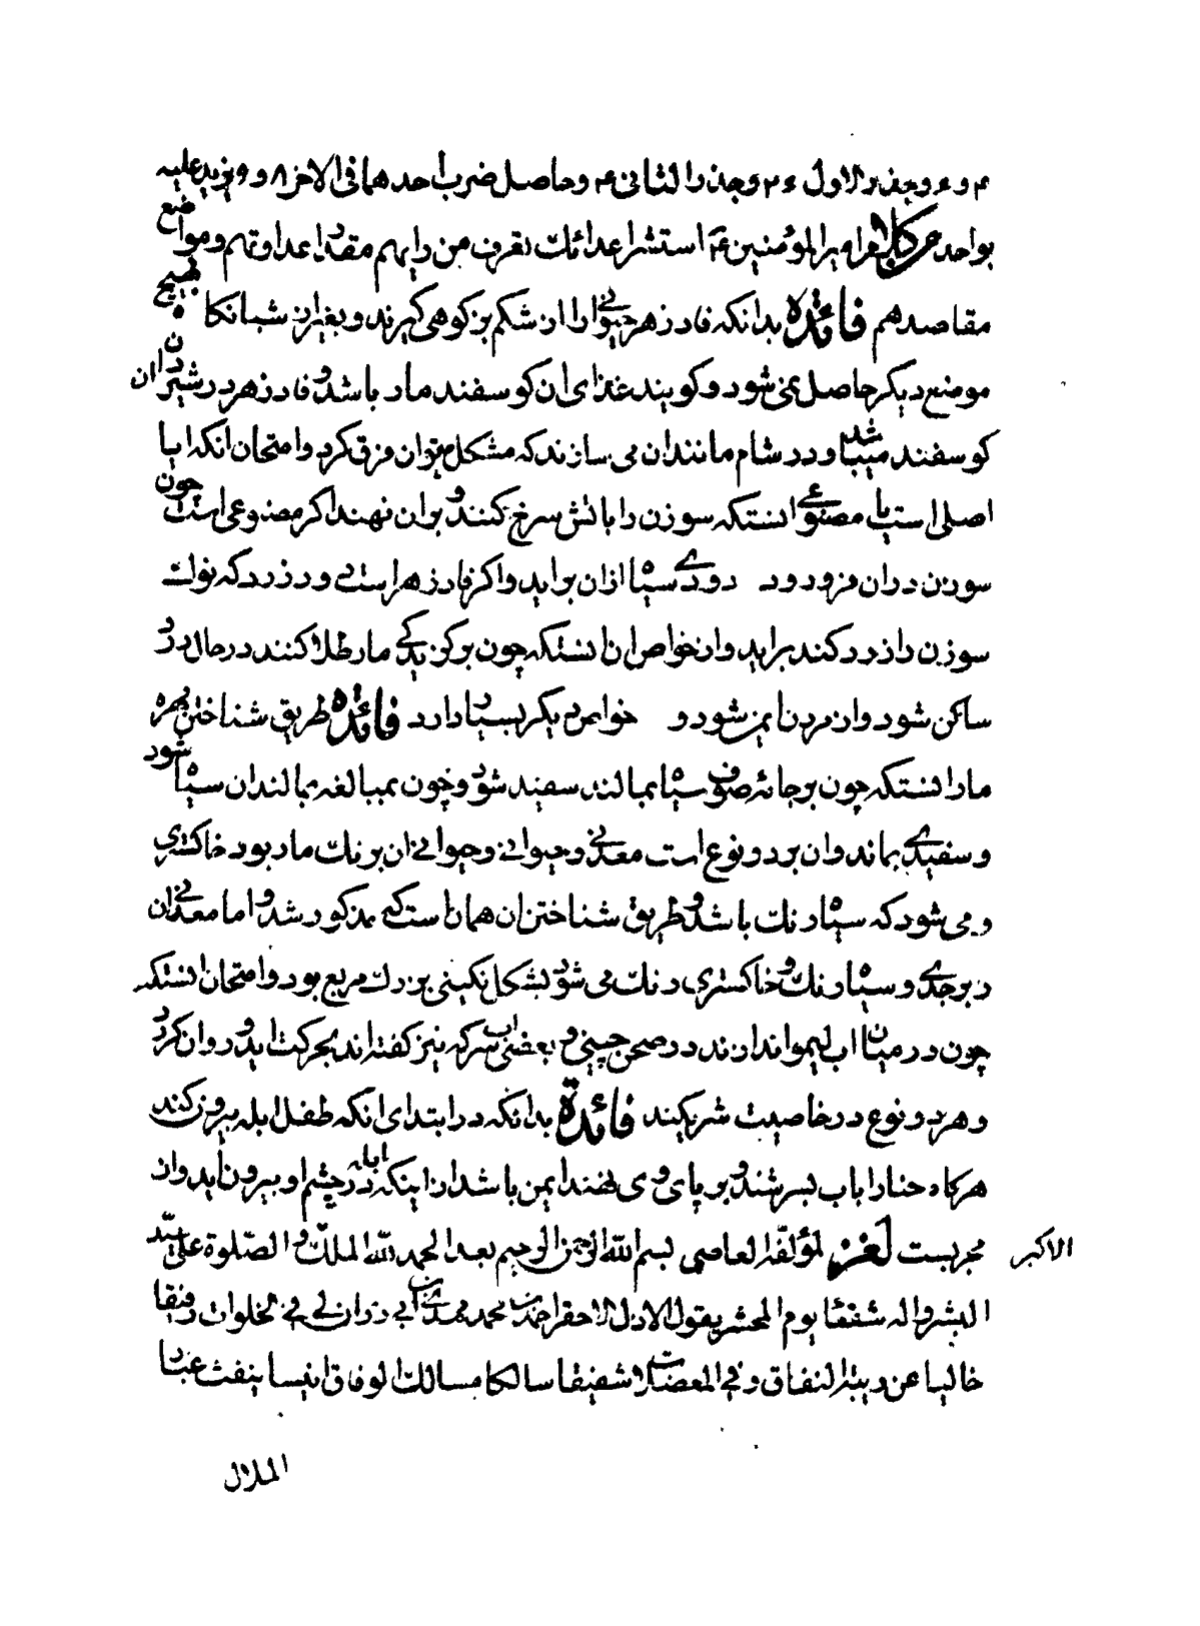 ۴ و ۶ وجذر الاول ۲۶ وجذر الثانی ۴ وحاصل ضرب احدهما فی الاخر ۸ و ویزید علیه
بواحد من کلام امیرالمؤمنین ع استشر اعدائک تعرف من رایهم مقدار عداوتهم ومواضع
مقاصدهم فائده بدانکه فادزهر حیوانی را از شکم بز کوهی گیرند وبغیر از شبانکاه
موضع دیکر حاصل نمی شود وکویند غذای ان کوسفند مار باشد وفادزهر در شیردان ان
کوسفند میباشد ودر شام مانند ان می سازند که مشکل میتوان فرق کرد وامتحان انکه ایا
اصلی است یا مصنوعی انستکه سوزن را باتش سرخ کنند وبران نهند اکر مصنوعی است چون
سوزن دران فرورود دودی سیاه ازان براید واکر فادزهر است دودی زرد که نوک
سوزن را زرد کند براید واز خواص ان انستکه چون بر کزیدگی مار طلا کنند در حال درد
ساکن شود وان مرد نایمن شود و خواص دیکر بسیار دارد فائده طریق شناختن مهره
مار انستکه چون بر جامه صوف سیاه بمالند سفید شود وچون بمبالغه بمالند ان سیاه شود
وسفیدی بماند وان بر دو نوع است معدنی وحیوانی وحیوانی ان برنک مار بود خاکستری
و می شود که سیاه رنک باشد وطریق شناختن ان همان است که مذکور شد واما معدنی ان
زبرجدی وسیاه رنک وخاکستری رنک می شود بشکل نکینی بزرک مربع بود وامتحان انستکه
چون در میان اب لیمو اندازند در صحن چینی و بعضی اب سرکه نیز کفته اند بحرکت اید وروان کردد
وهر دو نوع در خاصیت شریکند فائدة بدانکه در ابتدای انکه طفل ابله بیرون کند
هرکاه حنا را باب بسرشند وبر پای وی نهند ایمن باشد از اینکه ابله در چشم او بیرون اید وان
مجربست لغز لمؤلفه العاصی بسم الله الرحمن الرحیم بعد الحمد لله الملک والصلوة علی سید
الاکبر
البشر واله شفعاء یوم المحشر یقول الاذل الاحقر محمد ان لی فی الخلوات رفیقا
خالیا عن ریبة النفاق وفی المعضلات شفیقا سالکا مسالک الوفاق انیسا ینفث غبار
الملال